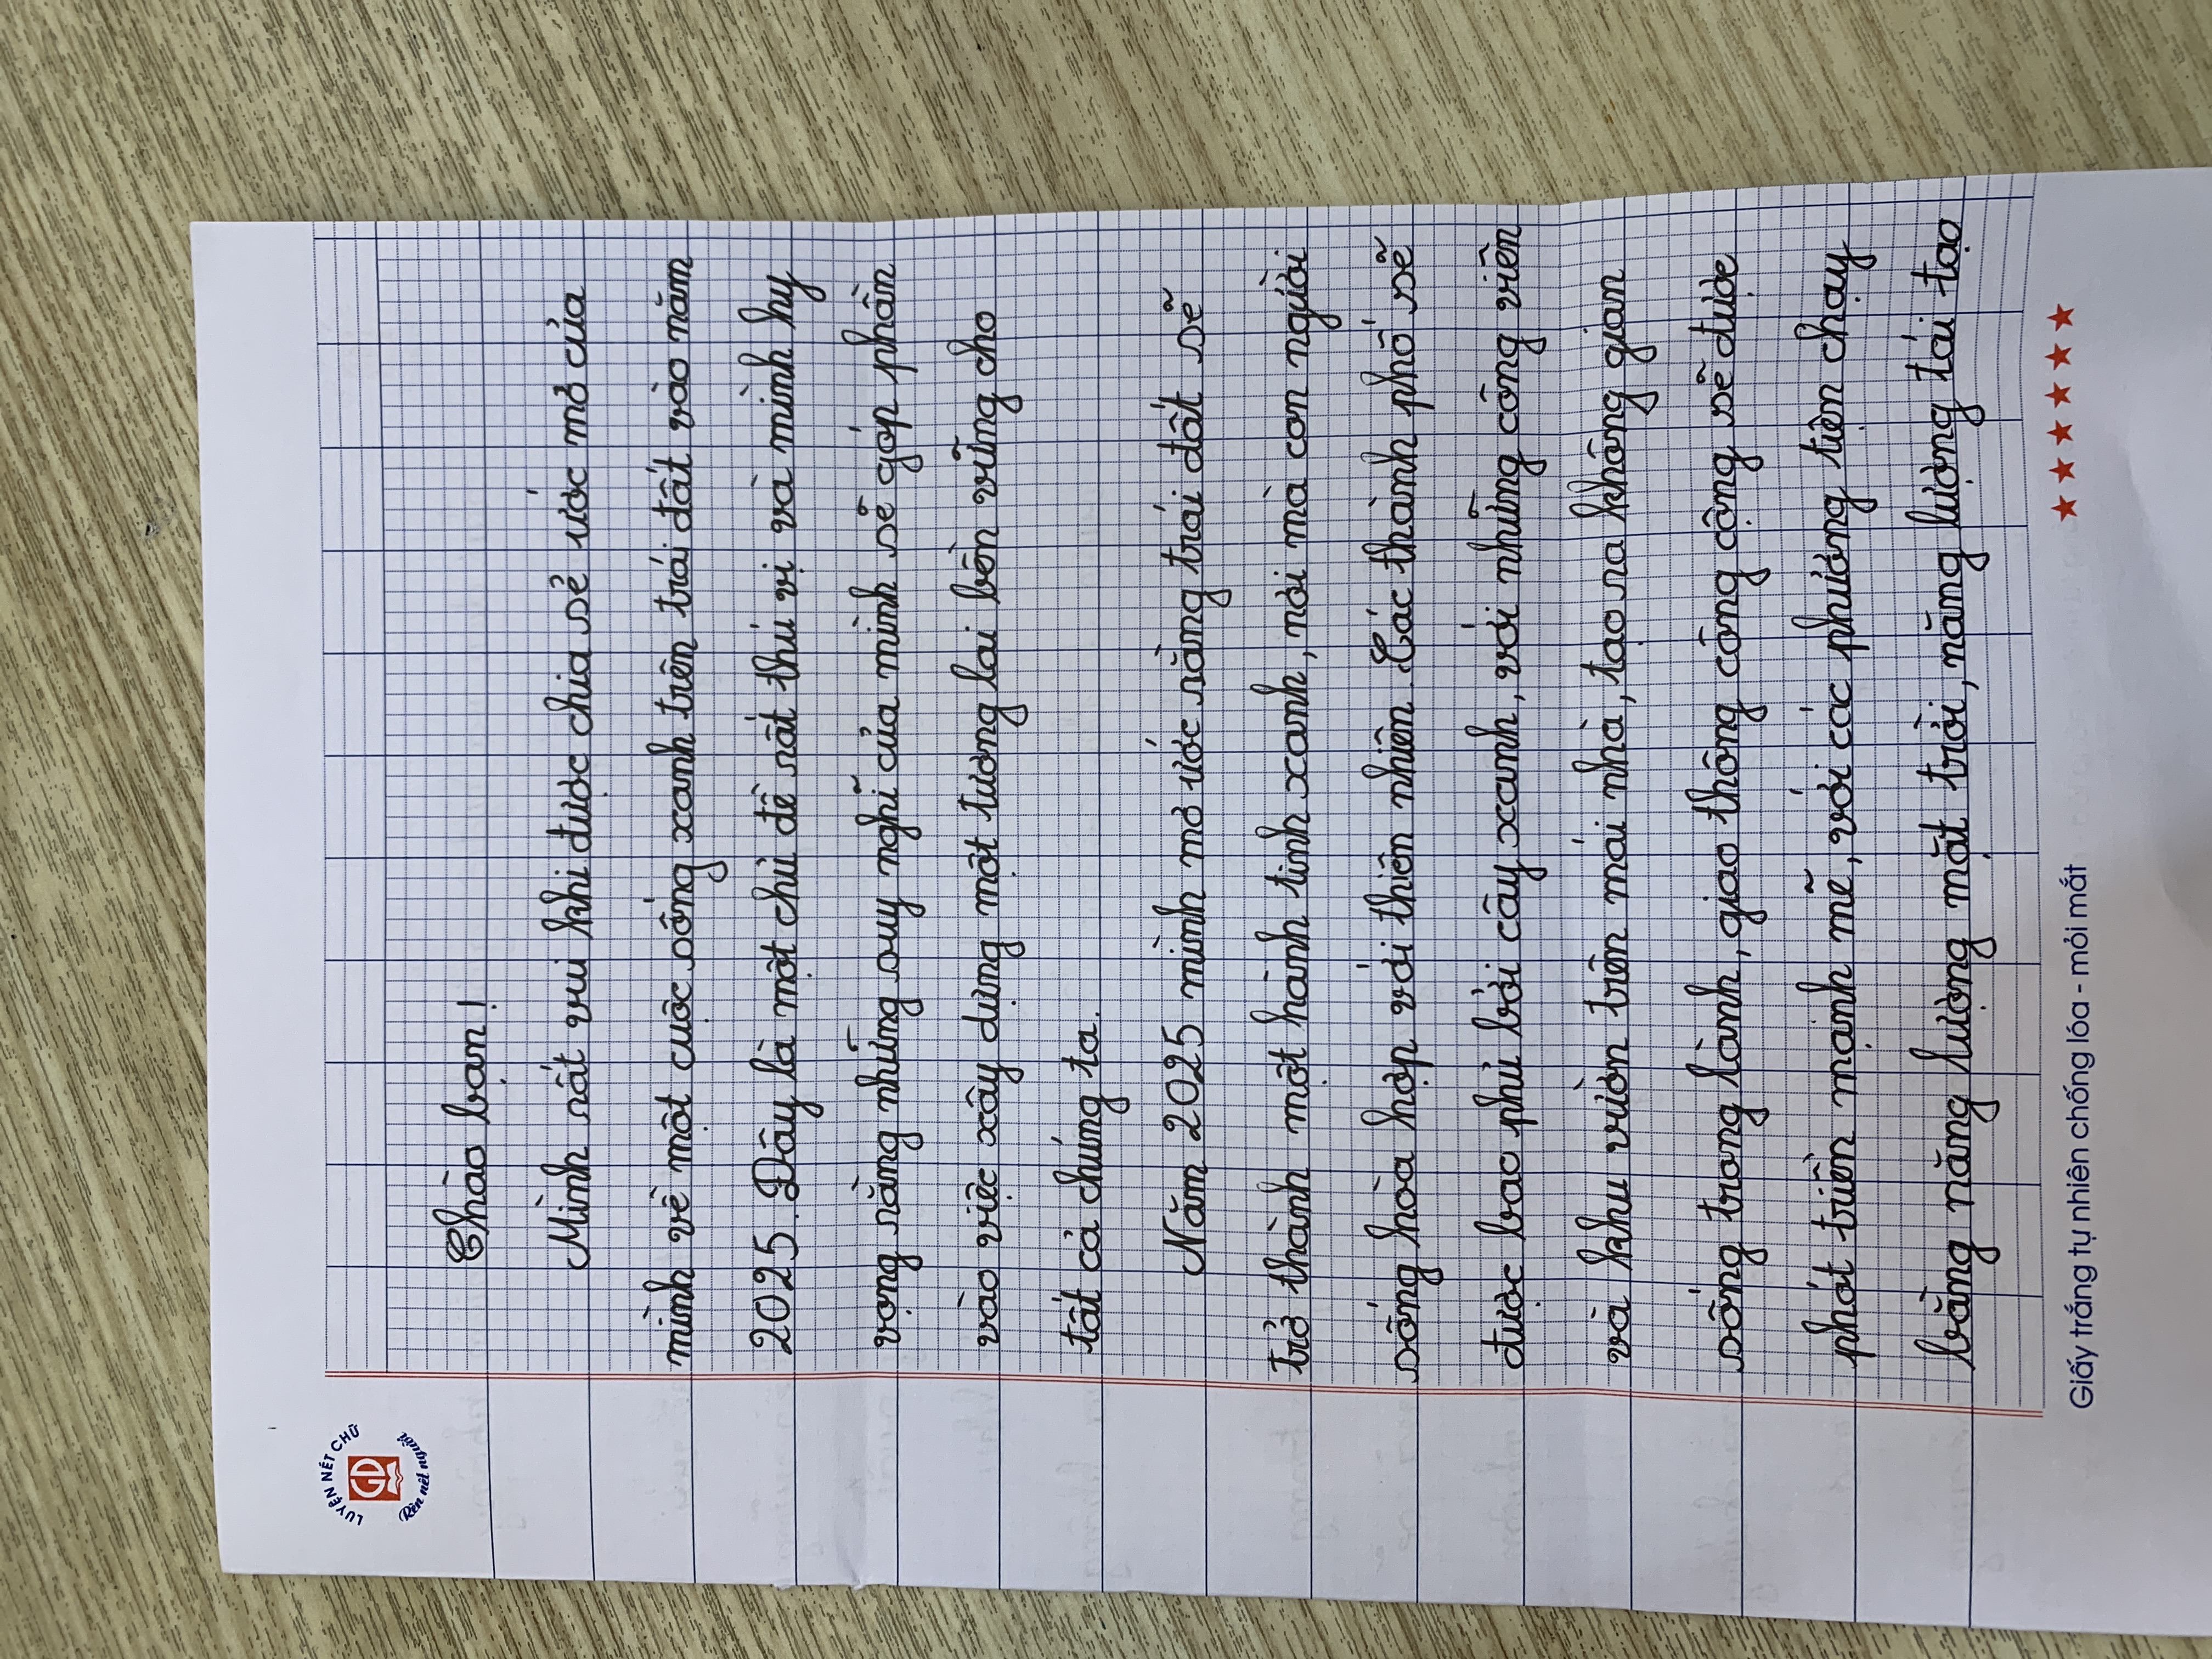 LUYỆN NÉT CHỮ
GD
Rèn nết người
Chào bạn!
Mình rất vui khi được chia sẻ ước mơ của
mình về một cuộc sống xanh trên trái đất vào năm
2025. Đây là một chủ đề rất thú vị và mình hy
vọng rằng những suy nghĩ của mình sẽ góp phần
vào việc xây dựng một tương lai bền vững cho
tất cả chúng ta.
Năm 2025 mình mơ ước rằng trái đất sẽ
trở thành một hành tinh xanh, nơi mà con người
sống hòa hợp với thiên nhiên. Các thành phố sẽ
được bao phủ bởi cây xanh, với những công viên
và khu vườn trên mái nhà, tạo ra không gian
sống trong lành, giao thông công cộng sẽ được
phát triển mạnh mẽ, với các phương tiện chạy
bằng năng lượng mặt trời, năng lượng tái tạo
Giấy trắng tự nhiên chống lóa - mỏi mắt